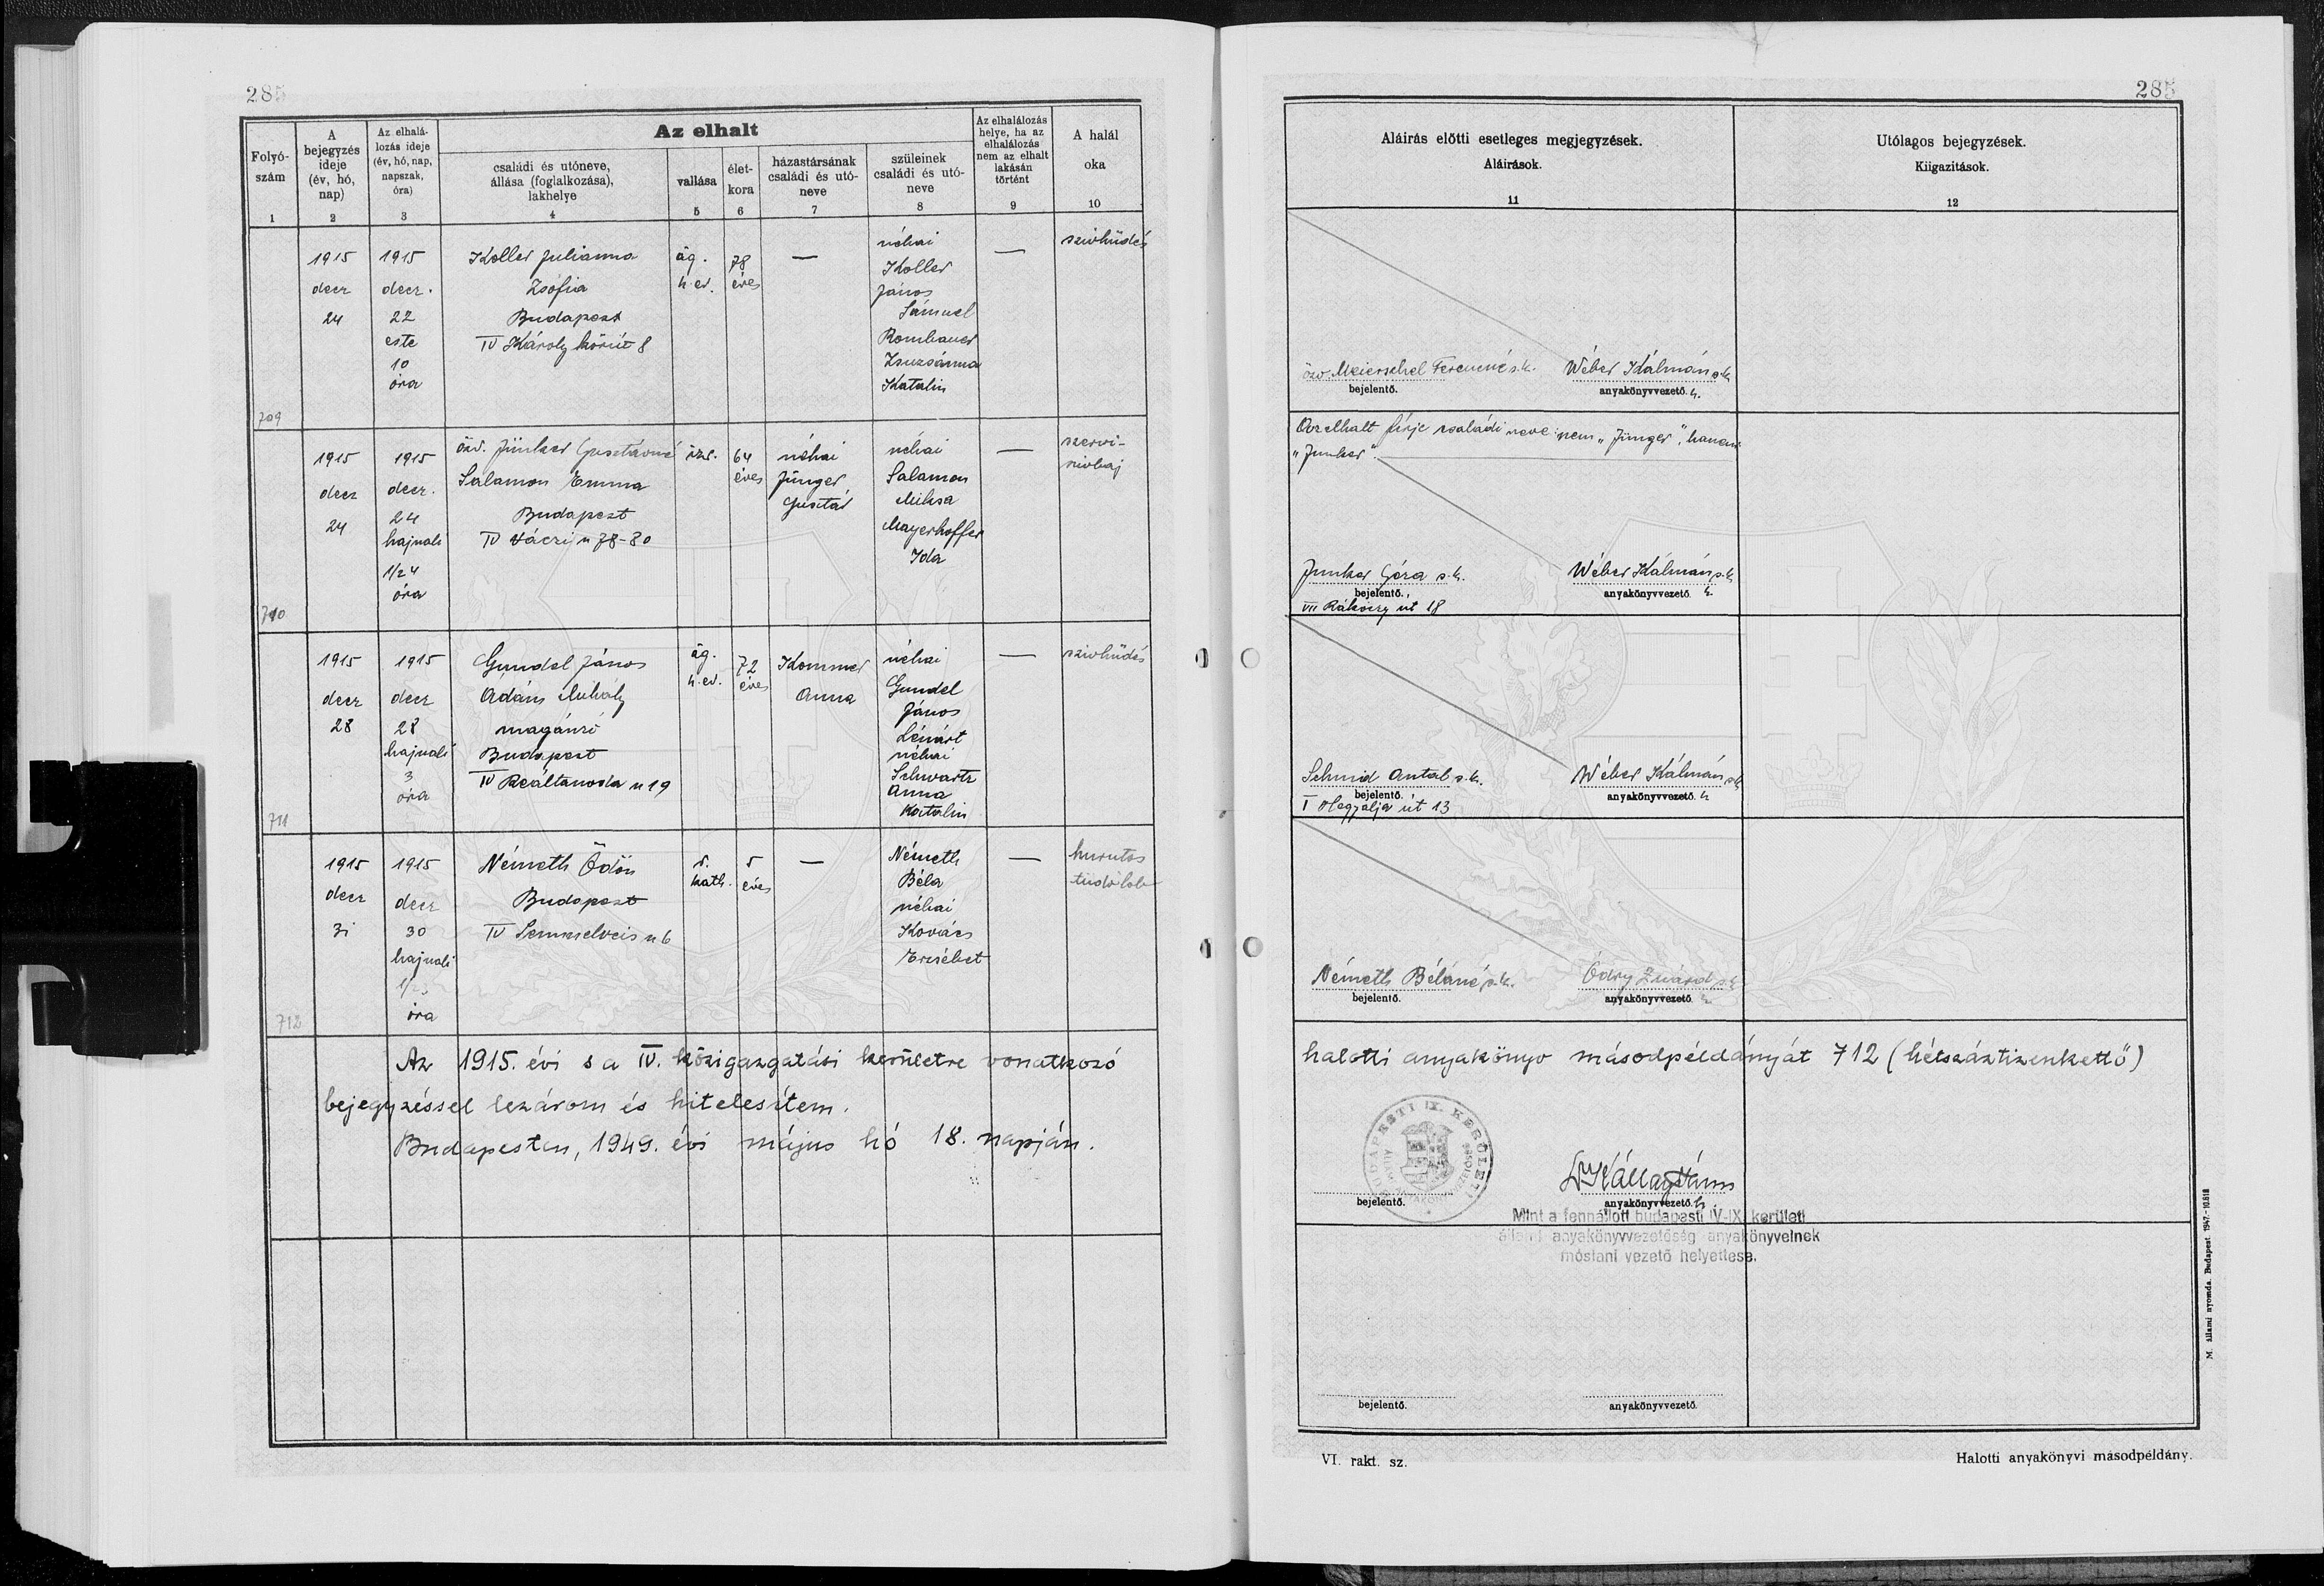 285
Folyó-
szám
1
A
bejegyzés
ideje
(év, hó,
nap)
2
Az elhalá-
lozás ideje
(év, hó, nap,
napszak,
óra)
3
Az elhalt
családi és utóneve,
állása (foglalkozása),
lakhelye
4
vallása
5
élet-
kora
6
házastársának
családi és utó-
neve
7
szüleinek
családi és utó-
neve
8
Az elhalálozás
helye, ha az
elhalálozás
nem az elhalt
lakásán
történt
9
A halál
oka
10
709
1915
decz
24
1915
decz.
22
este
10
óra
Koller Julianna
Zsófia
Budapest
IV Károly körút 8
ág.
h.ev.
78
éves
—
néhai
Koller
János
Sámuel
Rombauer
Zsuzsánna
Katalin
—
szivhüdés
710
1915
decz
24
1915
decz.
24
hajnali
1/2 4
óra
özv. Junker Gusztávné
Salamon Emma
Budapest
IV Váczi u 78-80
izr.
64
éves
néhai
Jünger
Gusztáv
néhai
Salamon
Miksa
Mayerhoffer
Ida
—
szervi-
szivbaj
711
1915
decz
28
1915
decz
28
hajnali
3
óra
Gundel János
Ádám Mihály
magánzó
Budapest
IV Reáltanoda u 19
ág.
h.ev.
72
éves
Kommer
Anna
néhai
Gundel
János
Lénárt
néhai
Schwartz
Anna
Katalin
—
szivhüdés
712
1915
decz
31
1915
decz
30
hajnali
óra
Németh Ödön
Budapest
IV Semmelveis u 6
r.
kath.
5
éves
—
Németh
Béla
néhai
Kovács
Erzsébet
—
hurutos
tüdőlob
Az 1915. évi s a IV. közigazgatási kerületre vonatkozó
bejegyzéssel lezárom és hitelesítem.
Budapesten, 1949. évi május hó 18. napján.
285
Aláirás előtti esetleges megjegyzések.
Aláirások.
11
Utólagos bejegyzések.
Kiigazitások.
12
özv. Meierschel Ferencné s.k. Wéber Kálmán s.k.
bejelentő. anyakönyvvezető. h.
Az elhalt férje családi neve: nem „Jünger", hanem
„Junker".
Junker Góza s.k. Wéber Kálmán s.k.
bejelentő. anyakönyvvezető. h.
VII Rákóczy út 18
Schmid Antal s.k. Wéber Kálmán s.k.
bejelentő. anyakönyvvezető. h
I Hegyalja út 13
Németh Béláné s.k. Ódry Zuárd s.k.
bejelentő. anyakönyvvezető. h
halotti anyakönyv másodpéldányát 712 (hétszáztizenkettő)
BUDAPESTI IX. KERÜLETI
bejelentő. anyakönyvvezető. h.
Mint a fennállott budapesti IV-IX. kerületi
állami anyakönyvvezetőség anyakönyveinek
mostani vezető helyettese.
bejelentő. anyakönyvvezető.
VI. rakt. sz.
Halotti anyakönyvi másodpéldány.
M. állami nyomda. Budapest. 1947.-10.618